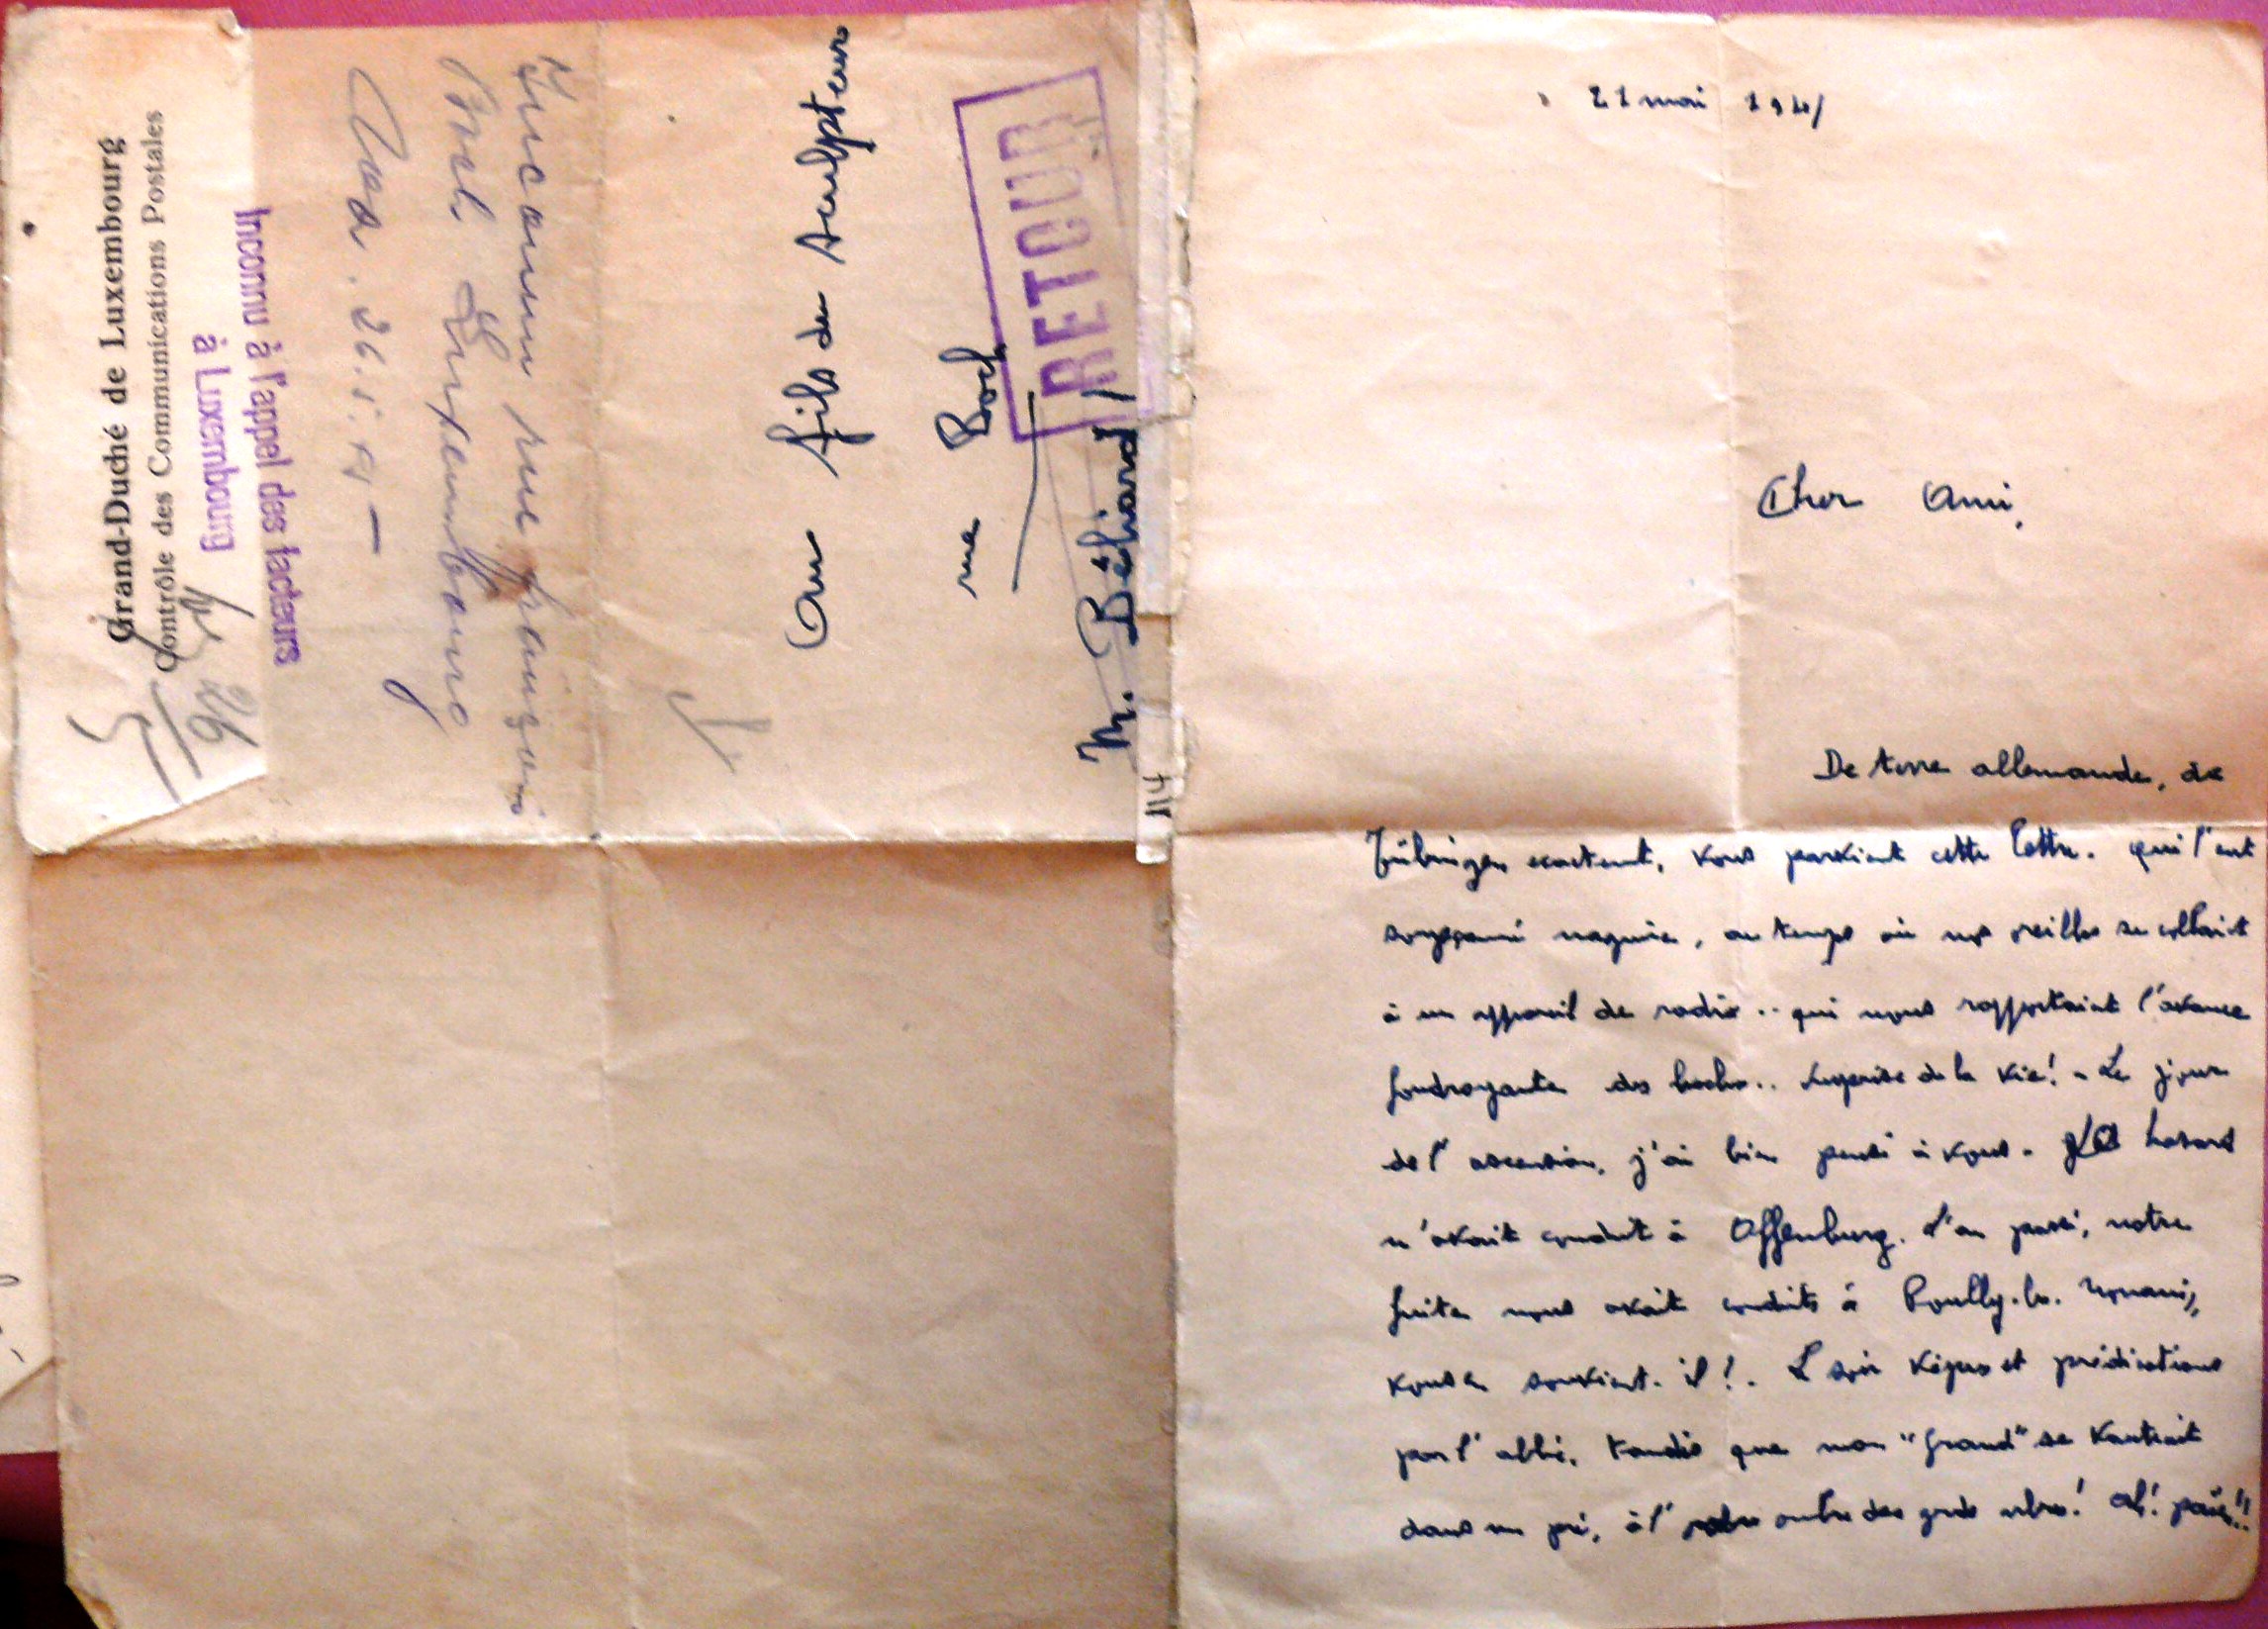 Grand-Duché de Luxembourg
Contrôle des Communications Postales
Inconnu à l'appel des facteurs
à Luxembourg
26
Inconnu rue
Boch Luxembourg
26.5.
RETOUR
M. Béliard
rue Boch
Au fils du sculpteur
21 mai 194
Cher Ami,
De terre allemande, de
Tübingen exactement, vous parvient cette lettre. Qui l'eut
soupçonné naguère, au temps où nos oreilles se collaient
à un appareil de radio.. qui nous rapportait l'avance
foudroyante des boches.. Surprise de la vie! - Le jour
de l'ascension, j'ai bien pensé à vous. hasard
m'avait conduit à Offenburg. L'an passé, notre
fuite nous avait conduits à Pouilly.les.Nonains,
vous en souvient-il!. Le soir vêpres et prédications
par l'abbé, tandis que mon "grand" se vautrait
dans un pré, à l' ombre des grds arbres! Ah! paix!!